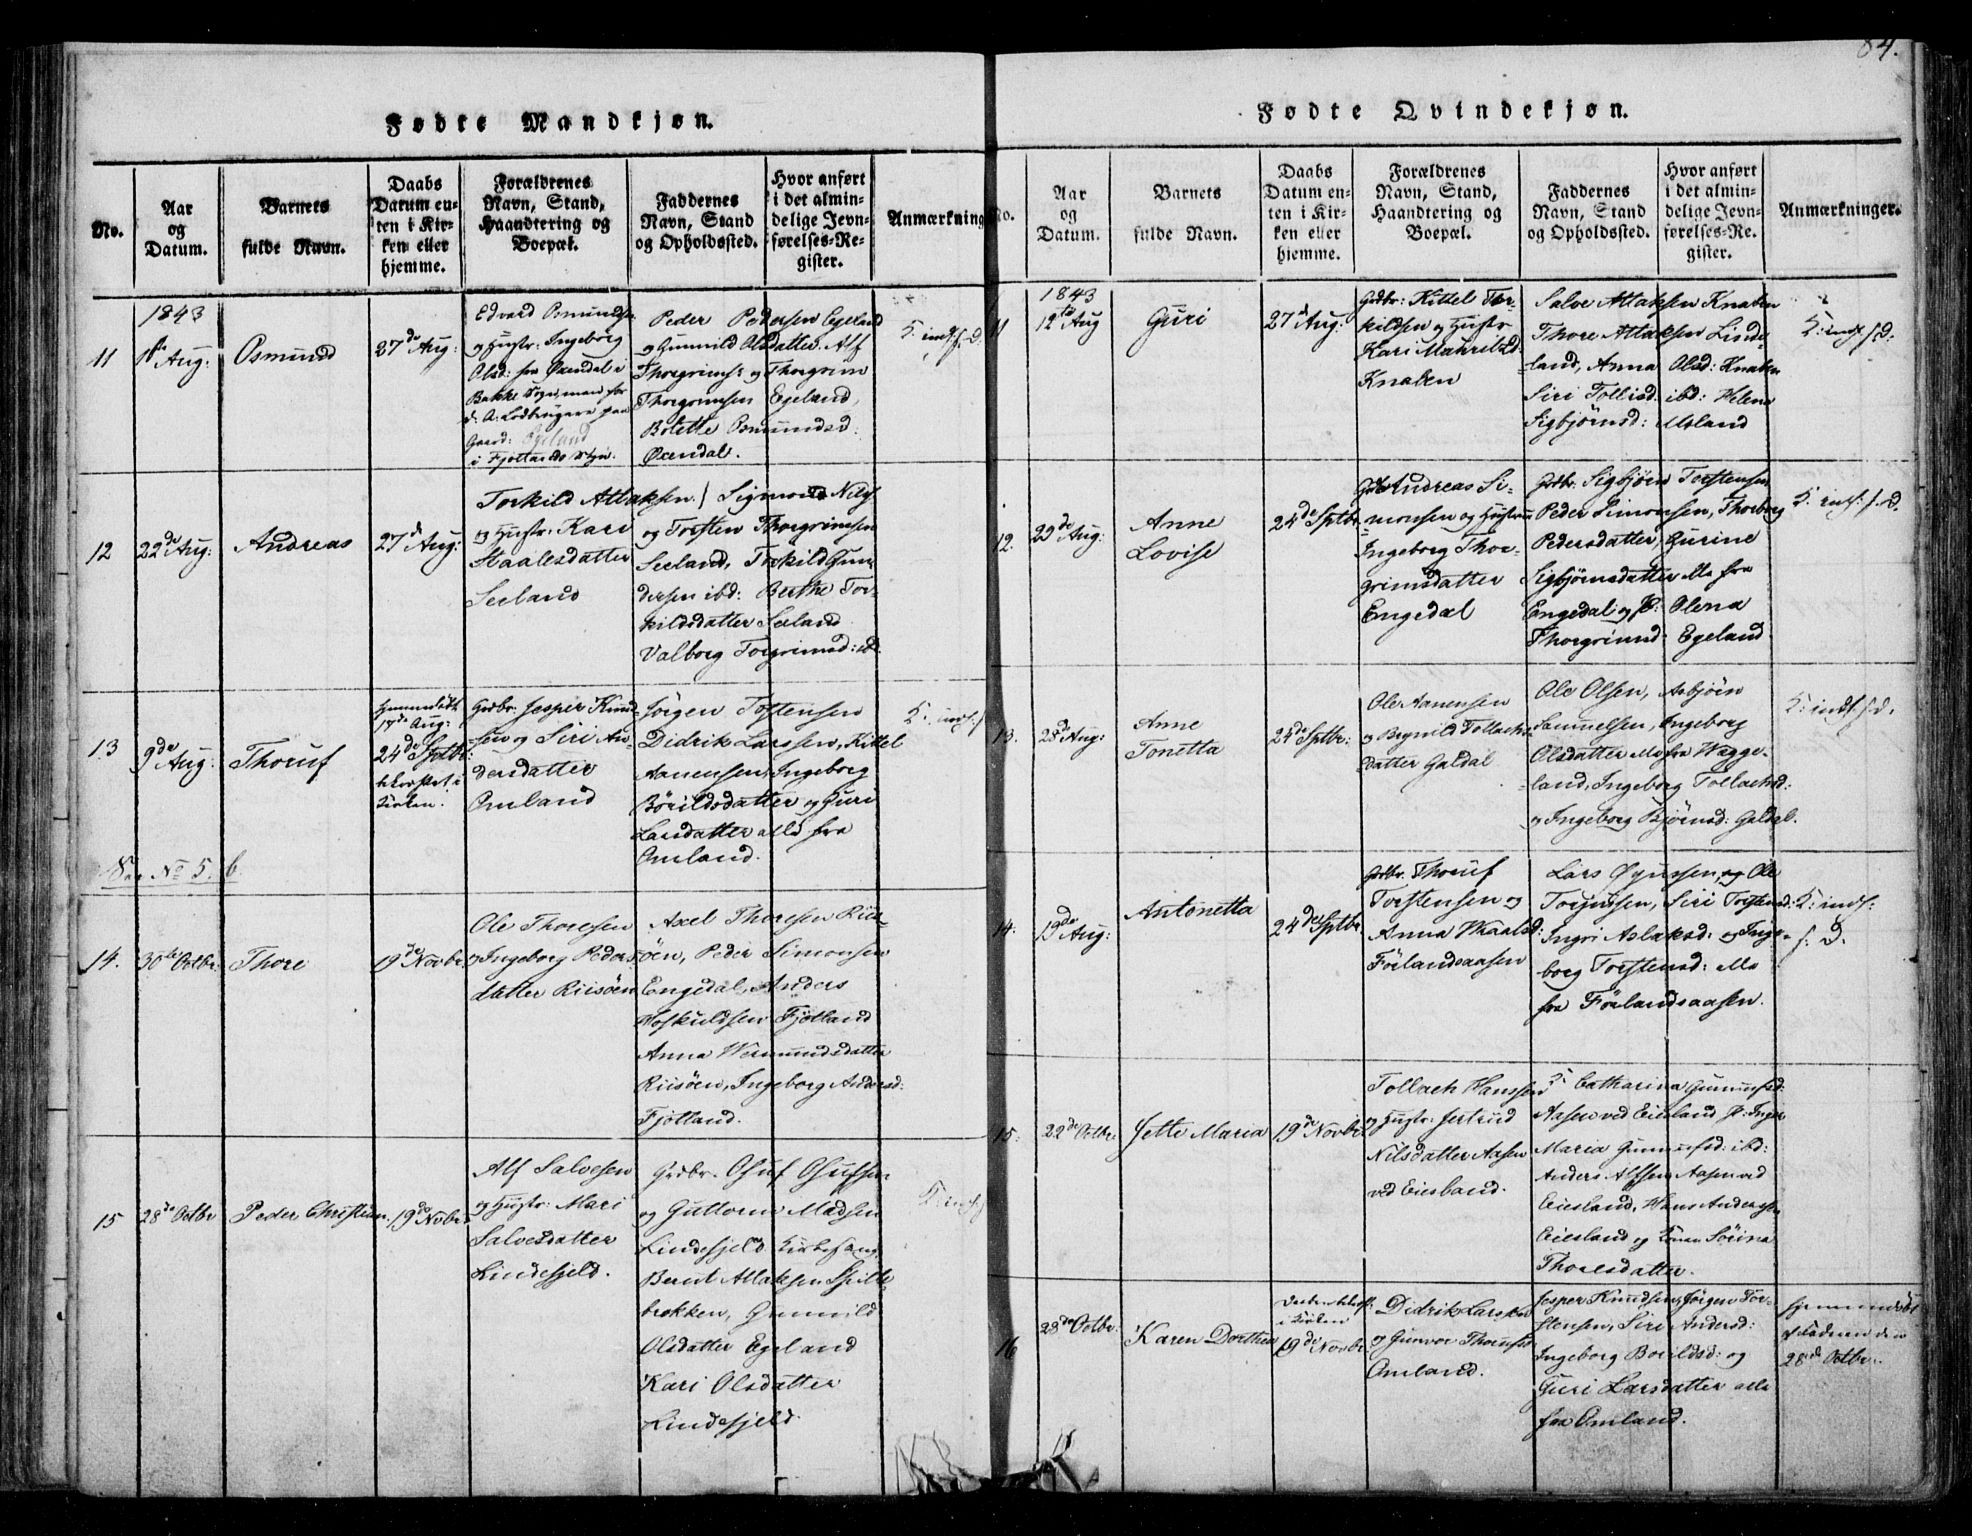 Fødte Mandkjøn.
No.
Aar
og
Datum.
Barnets
fulde Navn.
Daabs
Datum en-
ten i Kir-
ken eller
hjemme.
Forældrenes
Navn, Stand,
Haandtering og
Boepæl.
Faddernes
Navn, Stand
og Opholdssted.
Hvor anført
i det almin-
delige Jevn-
førelses-Re-
gister.
Anmærkning
11
1843
1ste Aug:
Osmund
27de Aug:
Edvard Osmunds:
og Hustr: Ingeborg
Olsd: fra Øxendal i
Bakke Sogn, men for
d: A: Lodbrugere paa
Gaard: Egeland
i Fjotlands Sogn.
Peder Pedersen Egeland
og Gunnild Olsdatter. Alf
Thorgrims: og Thorgrim
Thorgrimsen Egeland,
Bolette Osmundsd:
Øxendal.
K: indf: f: d.
12
22de Aug:
Andreas
27d Aug:
Torkild Atlaksen
og Hustr: Kari
Staalesdatter
Seeland
Sigmund Nils:
og Torsten Thorgrimsen
Seeland, Torkild Gun-
dersen ibd: Berthe Tor-
kildsdatter Seeland
Valborg Torgrimsd: ibd.
13
9de Aug:
Thoruf
Hjemmedøbt
17de Aug:
24de Sptbr:
Kirken.
Grdbr: Jesper Knud-
sen og Siri An-
dersdatter
Omland
Jørgen Tostensen
Didrik Larssen, Kittel
Aanensen, Ingeborg
Børildsdatter og Guri
Larsdatter alle fra
Omland.
K: indf: f
See No 5. b.
14.
30te Octbr:
Thore
19de Novbr:
Ole Thoresen
og Ingeborg Peders-
datter Riisøen
Axel Thoresen Riis-
øen, Peder Simonsen
Engedal, Anders
Hoskuldsen Fjotland
Anna Wermundsdatter
Riisøen, Ingeborg Andersd:
Fjotland.
15
28de Octbr
Peder Christian
19de Novbr
Alf Salvesen
og Hustr: Mari
Salvesdatter
Lindefjeld.
Grdbr. Osuf Osufsen
og Guttorm Madsen
Lindefjeld Kirkesang:
Berut Atlaksen Spille-
brokken, Gunnild
Olsdatter Egeland
Kari Olsdatter
Lindefjeld.
K: indf:
84.
Fødte Qvindekjøn.
No.
Aar
og
Datum.
Barnets
fulde Navn.
Daabs
Datum en-
ten i Kir-
ken eller
hjemme.
Forældrenes
Navn, Stand,
Haandtering og
Boepæl.
Faddernes
Navn, Stand
og Opholdssted.
Hvor anført
i det almin-
delige Jevn-
førelses-Re-
gister.
Anmærkninger.
11
1843
12te Aug
Guri
27de Aug:
Grdbr: Kittel Tor-
kildsen og Hustr:
Kari
Knaben
Salve Atlaksen Knaben
Thore Atlaksen Linde-
land, Anna Olsd: Knaben
Siri Tollisd: ibd: Helene
Sigbjørnsd: Msland
K: indf. f. d.
12.
23de Aug:
Anne
Lovise
24de Sptbr
Grdbr Andreas Si-
monsen og Hustrue
Ingeborg Thor-
grimsdatter
Engedal
Grdbr. Sigbjøen Torstensen
Peder Simonsen, Thorborg
Pedersdatter, Gurine
Sigbjørnsdatter alle fra
Engedal og P: Olena
Thorgrimsd: Egeland.
K: indf: f. d.
13.
23de Aug:
Anne
Tonetta
24de Sptbr:
Ole Aanensen
og Brynild Tollachs-
datter Galdal
Ole Olsen, Asbjøin
Samuelsen, Ingeborg
Olsdatter alle fra Wegge-
land, Ingeborg Tollachsd:
og Ingeborg Bjørnsd: Galdal.
K: indf. f. d.
14.
19de Aug:
Antonetta
24de Sptbr
Grdbr. Thoruf
Torstensen og
Anna Skaalsd:
Førlandsaasen
Lars Øyussen, og Ole
Torjussen, Siri Torstensd:
Ingri Aslaksd: og Inge-
borg Torstensd: alle
fra Førlandsaasen.
K: indf:
f: D.
15.
22de Octbr:
Jette Maria
19de Novbr
Tollach Hanssen
og Hustr: Jertrud
Nilsdatter Aasen
ved Eiesland.
K: Catharina Gunnufsd:
Aasen ved Eiesland P: Inger
Maria Gunnufsd: ibd:
Anders Alfsen Aasen ved
Eiesland, Hans Anderssen
Eiesland og Konen Sørina
Thoresdatter.
16
28de Octbr:
Karen Dorthea
i Kirken
19de Novbr
Didrik Larssen
og Gunvor Thorufsd:
Omland.
Jesper Knudsen, Jørgen Tor-
stensen, Siri Andersd:
Ingeborg Borildsd: og
Guri Larsdatter alle
fra Omland.
Hjemmedøbt
af Faderen den
28de Octbr: